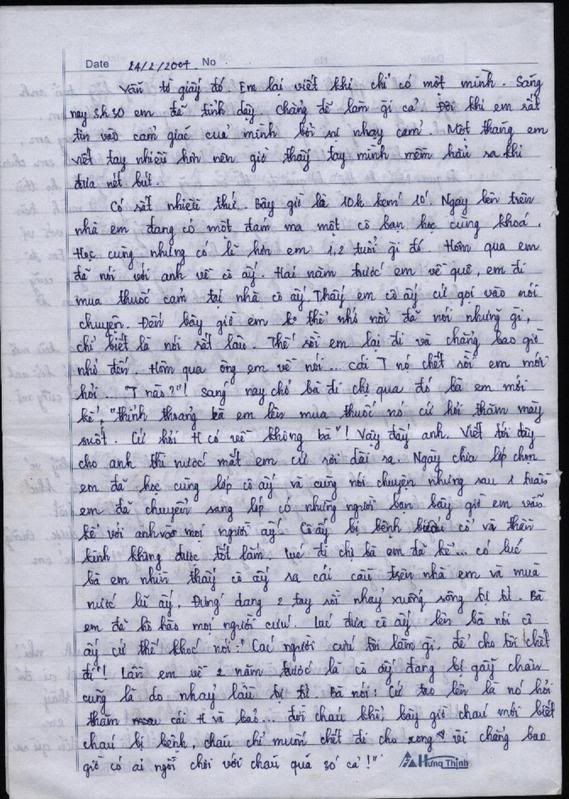 Date 24/2/2007 No
Vẫn tờ giấy đó Em lại viết khi chỉ có một mình. Sáng
nay 3h30 em đã tỉnh dậy. Chẳng để làm gì cả. Đôi khi em rất
tin vào cảm giác của mình bởi sự nhạy cảm. Một tháng em
viết tay nhiều hơn nên giờ thấy tay mình mềm hẳn ra khi
đưa nét bút.
Có rất nhiều thứ. Bây giờ là 10h kém 10'. Ngay bên trên
nhà em đang có một đám ma một cô bạn học cùng khoá.
Học cùng nhưng có lẽ hơn em 1,2 tuổi gì đó. Hôm qua em
đã nói với anh về cô ấy. Hai năm trước em về quê, em đi
mua thuốc cảm tại nhà cô ấy. Thấy em cô ấy cứ gọi vào nói
chuyện. Đến bây giờ em ko thể nhớ nổi đã nói những gì,
chỉ biết là nói rất lâu. Thế rồi em lại đi và chẳng bao giờ
nhớ đến. Hôm qua ông em về nói... cái T nó chết rồi em mới
hỏi... "T nào?"! Sáng nay chở bà đi chị qua đó bà em mới
kể, "thỉnh thoảng bà em lên mua thuốc nó cứ hỏi thăm mày
suốt. Cứ hỏi H có về không bà"! Vậy đấy anh. Viết tới đây
cho anh thì nước mắt em cứ rơi dài ra. Ngày chia lớp chọn
em đã học cùng lớp cô ấy và cũng nói chuyện nhưng sau 1 tuần
em đã chuyển sang lớp có những người bạn bây giờ em vẫn
kể với anh mọi người ấy! Cô ấy bị bệnh bướu cổ và thần
kinh không được tốt lắm. Lúc đi chị bà em đã kể... có lúc
bà em nhìn thấy cô ấy ra cái cầu trên nhà em và mùa
nước lũ ấy. Đứng dang 2 tay rồi nhảy xuống sông tự tử. Bà
em đã hô hào mọi người cứu. Lúc đưa cô ấy lên bà nói cô
ấy cứ thế khóc nói: "Các người cứu tôi làm gì, để cho tôi chết
đi"! Lần em về 2 năm trước là cô ấy đang bị gãy chân
cũng là do nhảy lầu tự tử. Bà nói: Cứ tao lên là nó hỏi
thăm cái H và bảo... đôi khi, bây giờ cháu mới biết
cháu bị bệnh, cháu chỉ muốn chết đi cho xong vì chẳng bao
giờ có ai ngồi chơi với cháu quá số cả!"
Hưng Thịnh